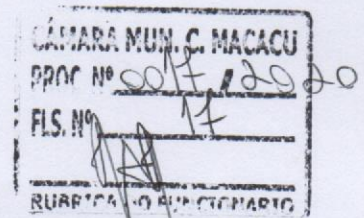 CÂMARA MUN. C. MACACU
PROC. Nº 0017/2020
FLS. Nº 17
RUBRICA DO FUNCIONARIO